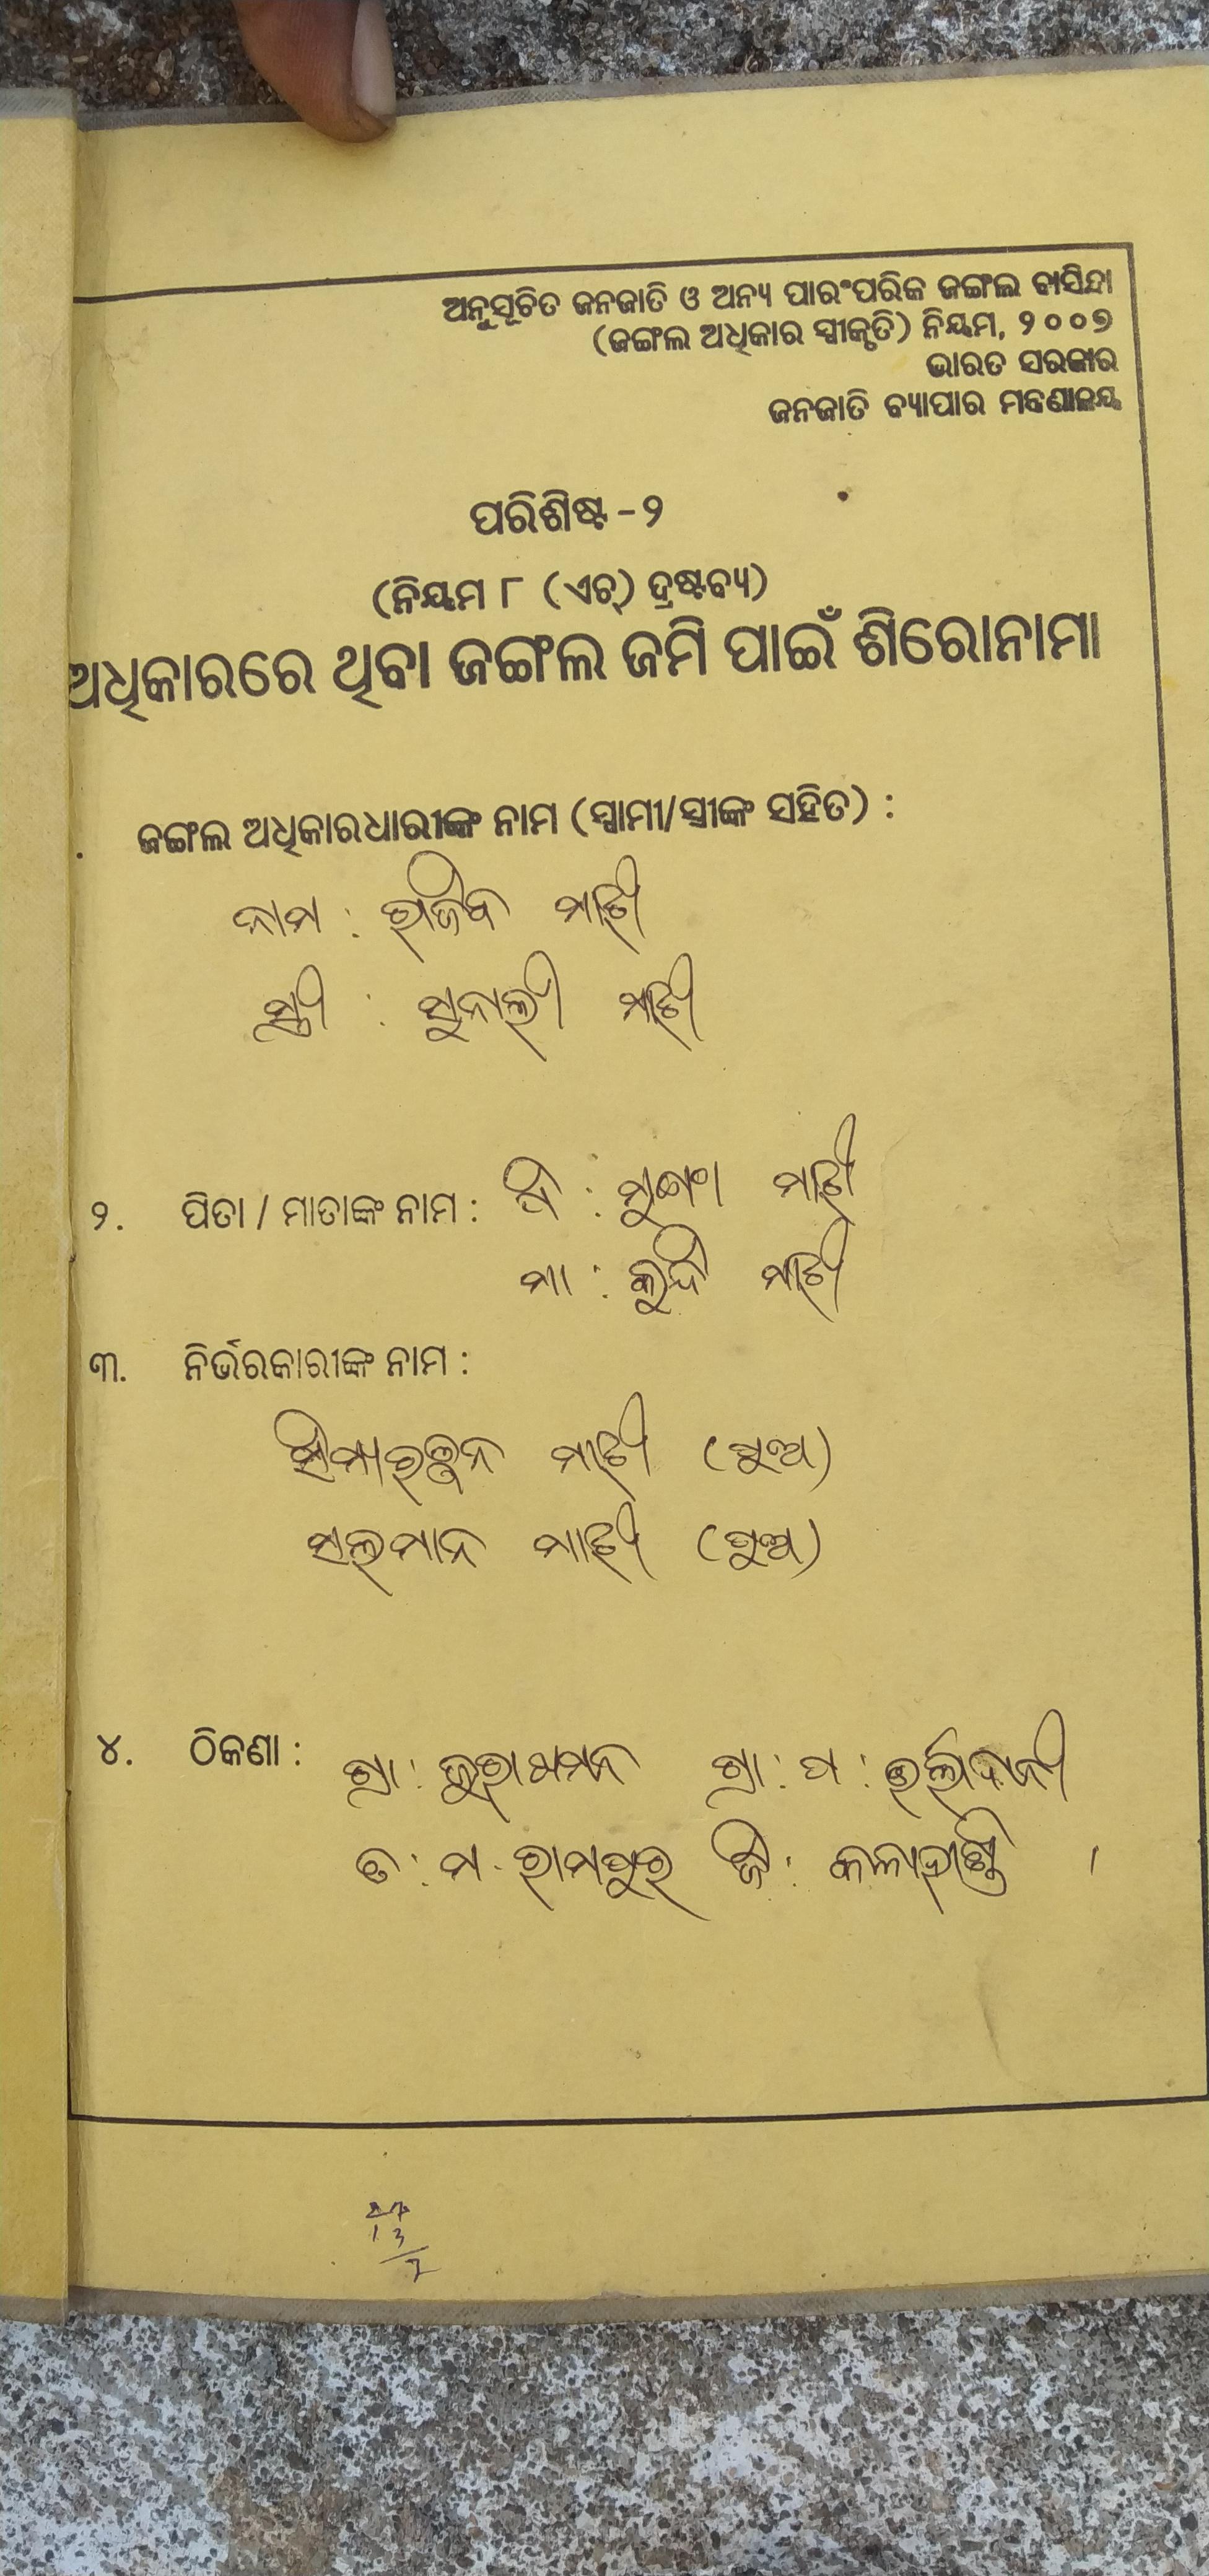 ଅନୁସୂଚିତ ଜନଜାତି ଓ ଅନ୍ୟ ପାରଂପରିକ ଜଙ୍ଗଲ ବାସିନ୍ଦା
(ଜଙ୍ଗଲ ଅଧିକାର ସ୍ୱୀକୃତି) ନିୟମ, ୨୦୦୭
ଭାରତ ସରକାର
ଜନଜାତି ବ୍ୟାପାର ମନ୍ତ୍ରଣାଳୟ
ପରିଶିଷ୍ଟ -୨
(ନିୟମ ୮ (ଏଚ୍) ଦ୍ରଷ୍ଟବ୍ୟ)
ଅଧିକାରରେ ଥିବା ଜଙ୍ଗଲ ଜମି ପାଇଁ ଶିରୋନାମା
ଜଙ୍ଗଲ ଅଧିକାରଧାରୀଙ୍କ ନାମ (ସ୍ୱାମୀ/ସ୍ତ୍ରୀଙ୍କ ସହିତ) :
ନାମ : ରାଜିବ ମାଝୀ
ସ୍ତ୍ରୀ : ସୁନାଲୀ ମାଝୀ
୨. ପିତା / ମାତାଙ୍କ ନାମ : ପି : ମାଝୀ
ମା : କୁନ୍ଦି ମାଝୀ
୩. ନିର୍ଭରକାରୀଙ୍କ ନାମ :
ମାଝୀ (ପୁଅ)
ସଲମାନ ମାଝୀ (ପୁଅ)
୪. ଠିକଣା : ଗ୍ରା : ଗ୍ରା : ପ :
ତ : ମ. ରାମପୁର ଜି : କଳାହାଣ୍ଡି ।